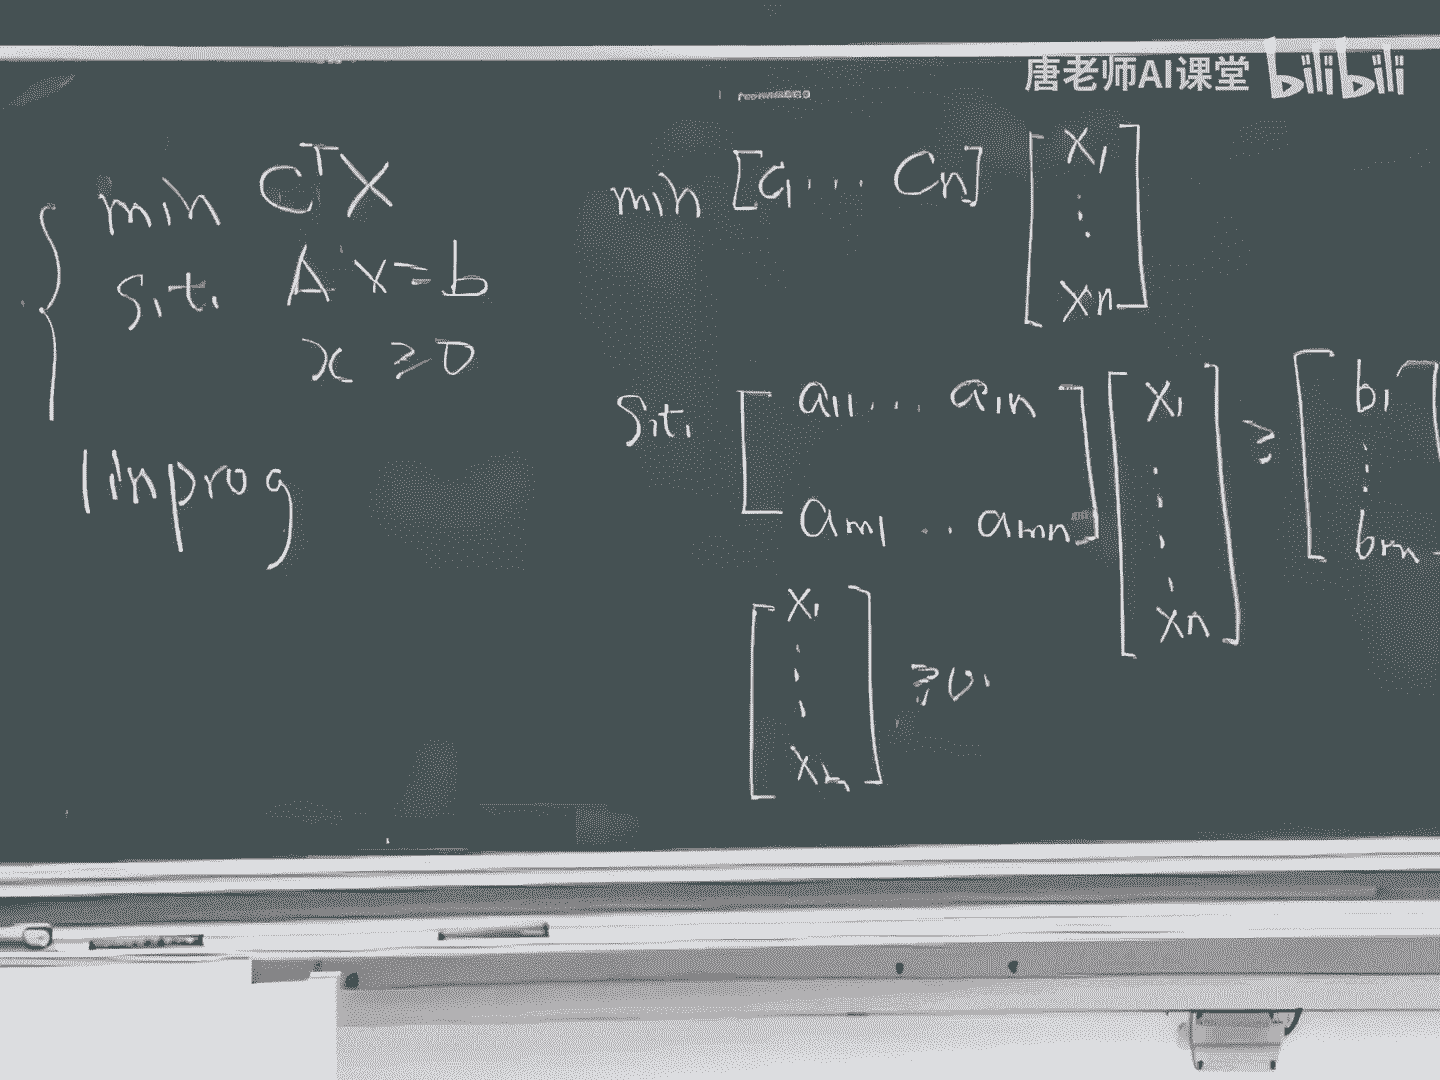 唐老师AI课堂 bilibili
min CᵀX
s.t. Ax=b
x ≥0
linprog
min [C₁ ... Cn] [x₁ ⋮ xn]
s.t. [a₁₁ ... a₁n
am₁ .. amn] [x₁ ⋮ xn] ≥ [b₁ ⋮ bm]
[x₁ ⋮ xn] ≥0.